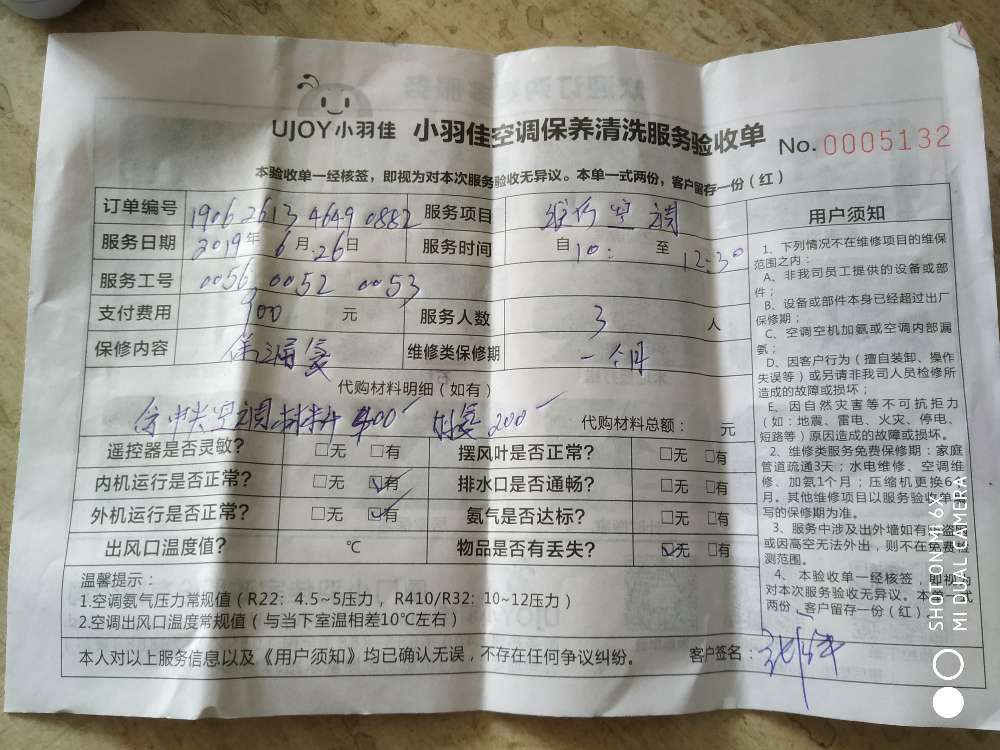 UJOY小羽佳 小羽佳空调保养清洗服务验收单 No.0005132
本验收单一经核签，即视为对本次服务验收无异议。本单一式两份，客户留存一份（红）
订单编号 1906 2613 4649 0882 服务项目 维修空调
服务日期 2019年6月26日 服务时间 自10: 至12:30
服务工号 0056 0052 0053
支付费用 900 元 服务人数 3 人
保修内容 维修类保修期 一个月
代购材料明细（如有）
中央空调材料 400 200 代购材料总额： 元
遥控器是否灵敏？ □无 □有 摆风叶是否正常？ □无 □有
内机运行是否正常？ □无 ☑有 排水口是否通畅？ □无 □有
外机运行是否正常？ □无 ☑有 氨气是否达标？ □无 □有
出风口温度值？ ℃ 物品是否有丢失？ ☑无 □有
温馨提示：
1.空调氨气压力常规值（R22：4.5~5压力，R410/R32：10~12压力）
2.空调出风口温度常规值（与当下室温相差10℃左右）
本人对以上服务信息以及《用户须知》均已确认无误，不存在任何争议纠纷。 客户签名：
用户须知
1、下列情况不在维修项目的维保
范围之内：
A、非我司员工提供的设备或部
件；
B、设备或部件本身已经超过出厂
保修期；
C、空调空机加氨或空调内部漏
氨；
D、因客户行为（擅自装卸、操作
失误等）或另请非我司人员检修所
造成的故障或损坏；
E、因自然灾害等不可抗拒力
（如：地震、雷电、火灾、停电、
短路等）原因造成的故障或损坏。
2、维修类服务免费保修期：家庭
管道疏通3天；水电维修、空调维
修、加氨1个月；压缩机更换6
月。其他维修项目以服务验收单
写的保修期为准。
3、服务中涉及出外墙如有防盗
或因高空无法外出，则不在免费
测范围。
4、本验收单一经核签，即视为
对本次服务验收无异议。本单一式
两份，客户留存一份（红）。
SHOT ON MI 6X
MI DUAL CAMERA